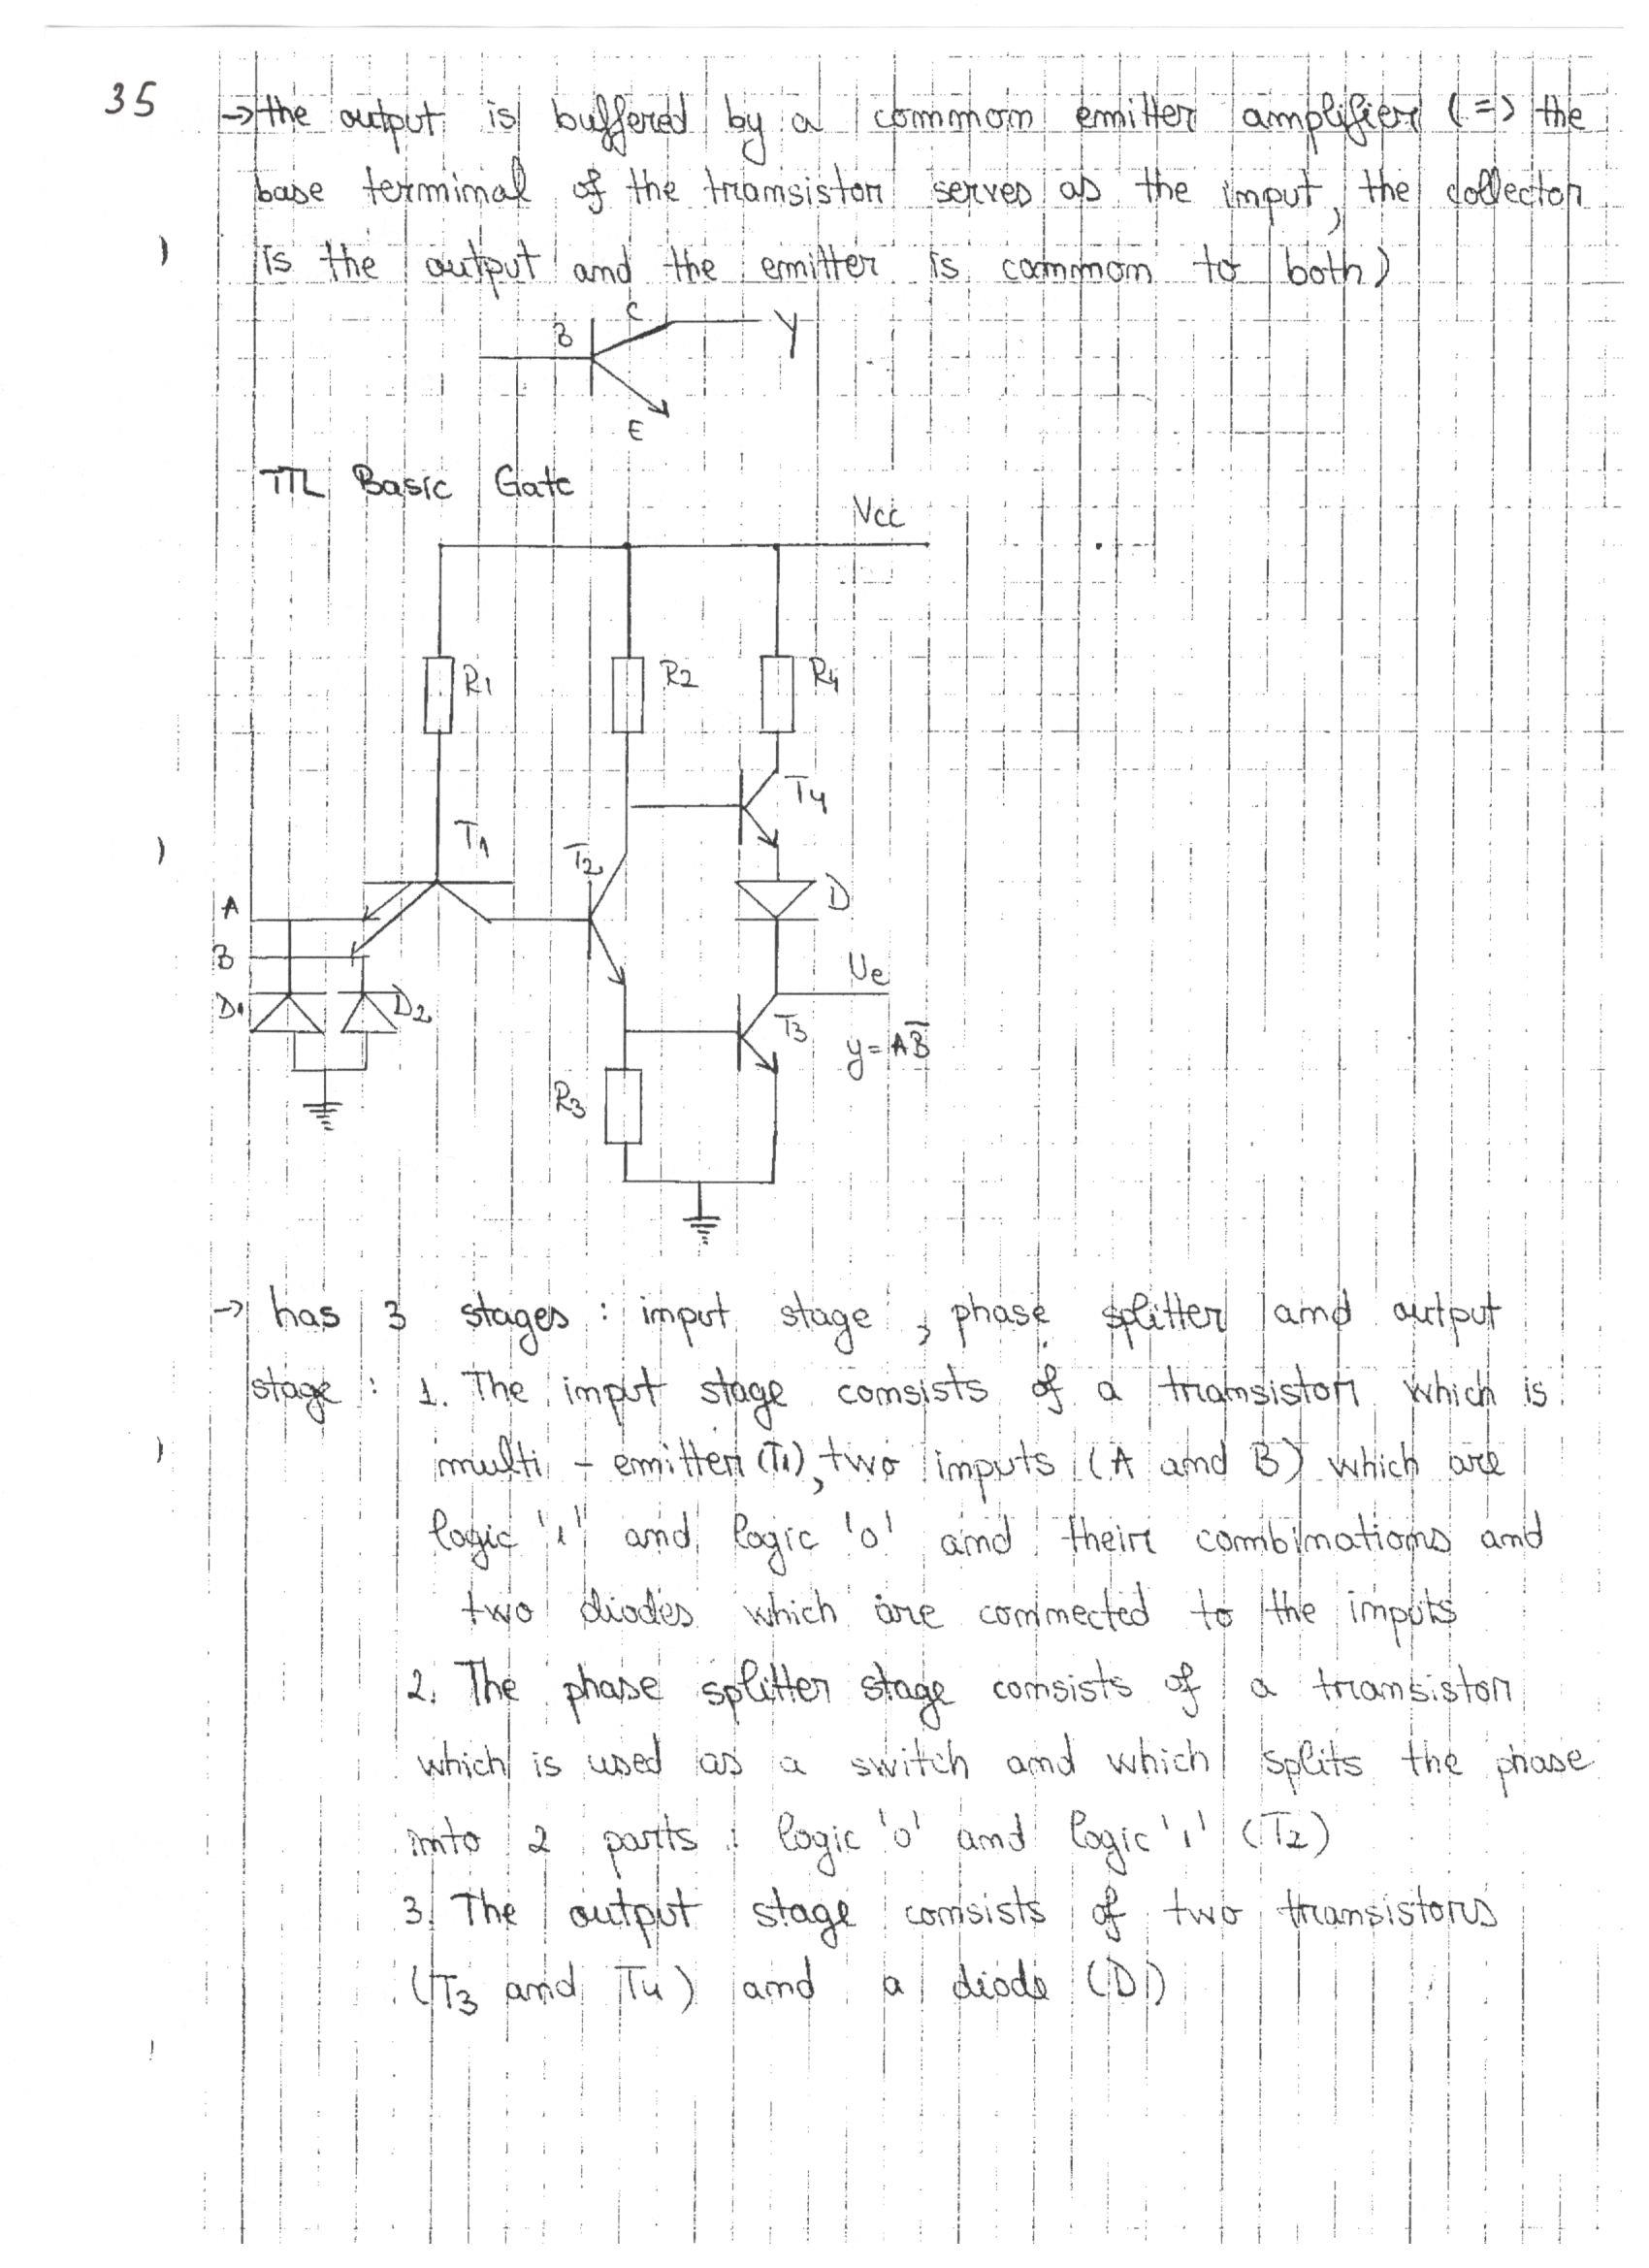 35
→ the output is buffered by a common emitter amplifier (=> the
base terminal of the transistor serves as the input, the collector
is the output and the emitter is common to both)
C
B
Y
E
TTL Basic Gate
Vcc
R1
R2
R4
T4
T1
T2
A
D
B
Ue
D1
D2
T3
y=A\overline{B}
R3
→ has 3 stages : input stage , phase splitter and output
stage : 1. The input stage consists of a transistor which is
multi - emitter (T1), two inputs (A and B) which are
logic '1' and logic '0' and their combinations and
two diodes which are connected to the inputs
2. The phase splitter stage consists of a transistor
which is used as a switch and which splits the phase
into 2 parts : logic '0' and logic '1' (T2)
3. The output stage consists of two transistors
(T3 and T4) and a diode (D1)